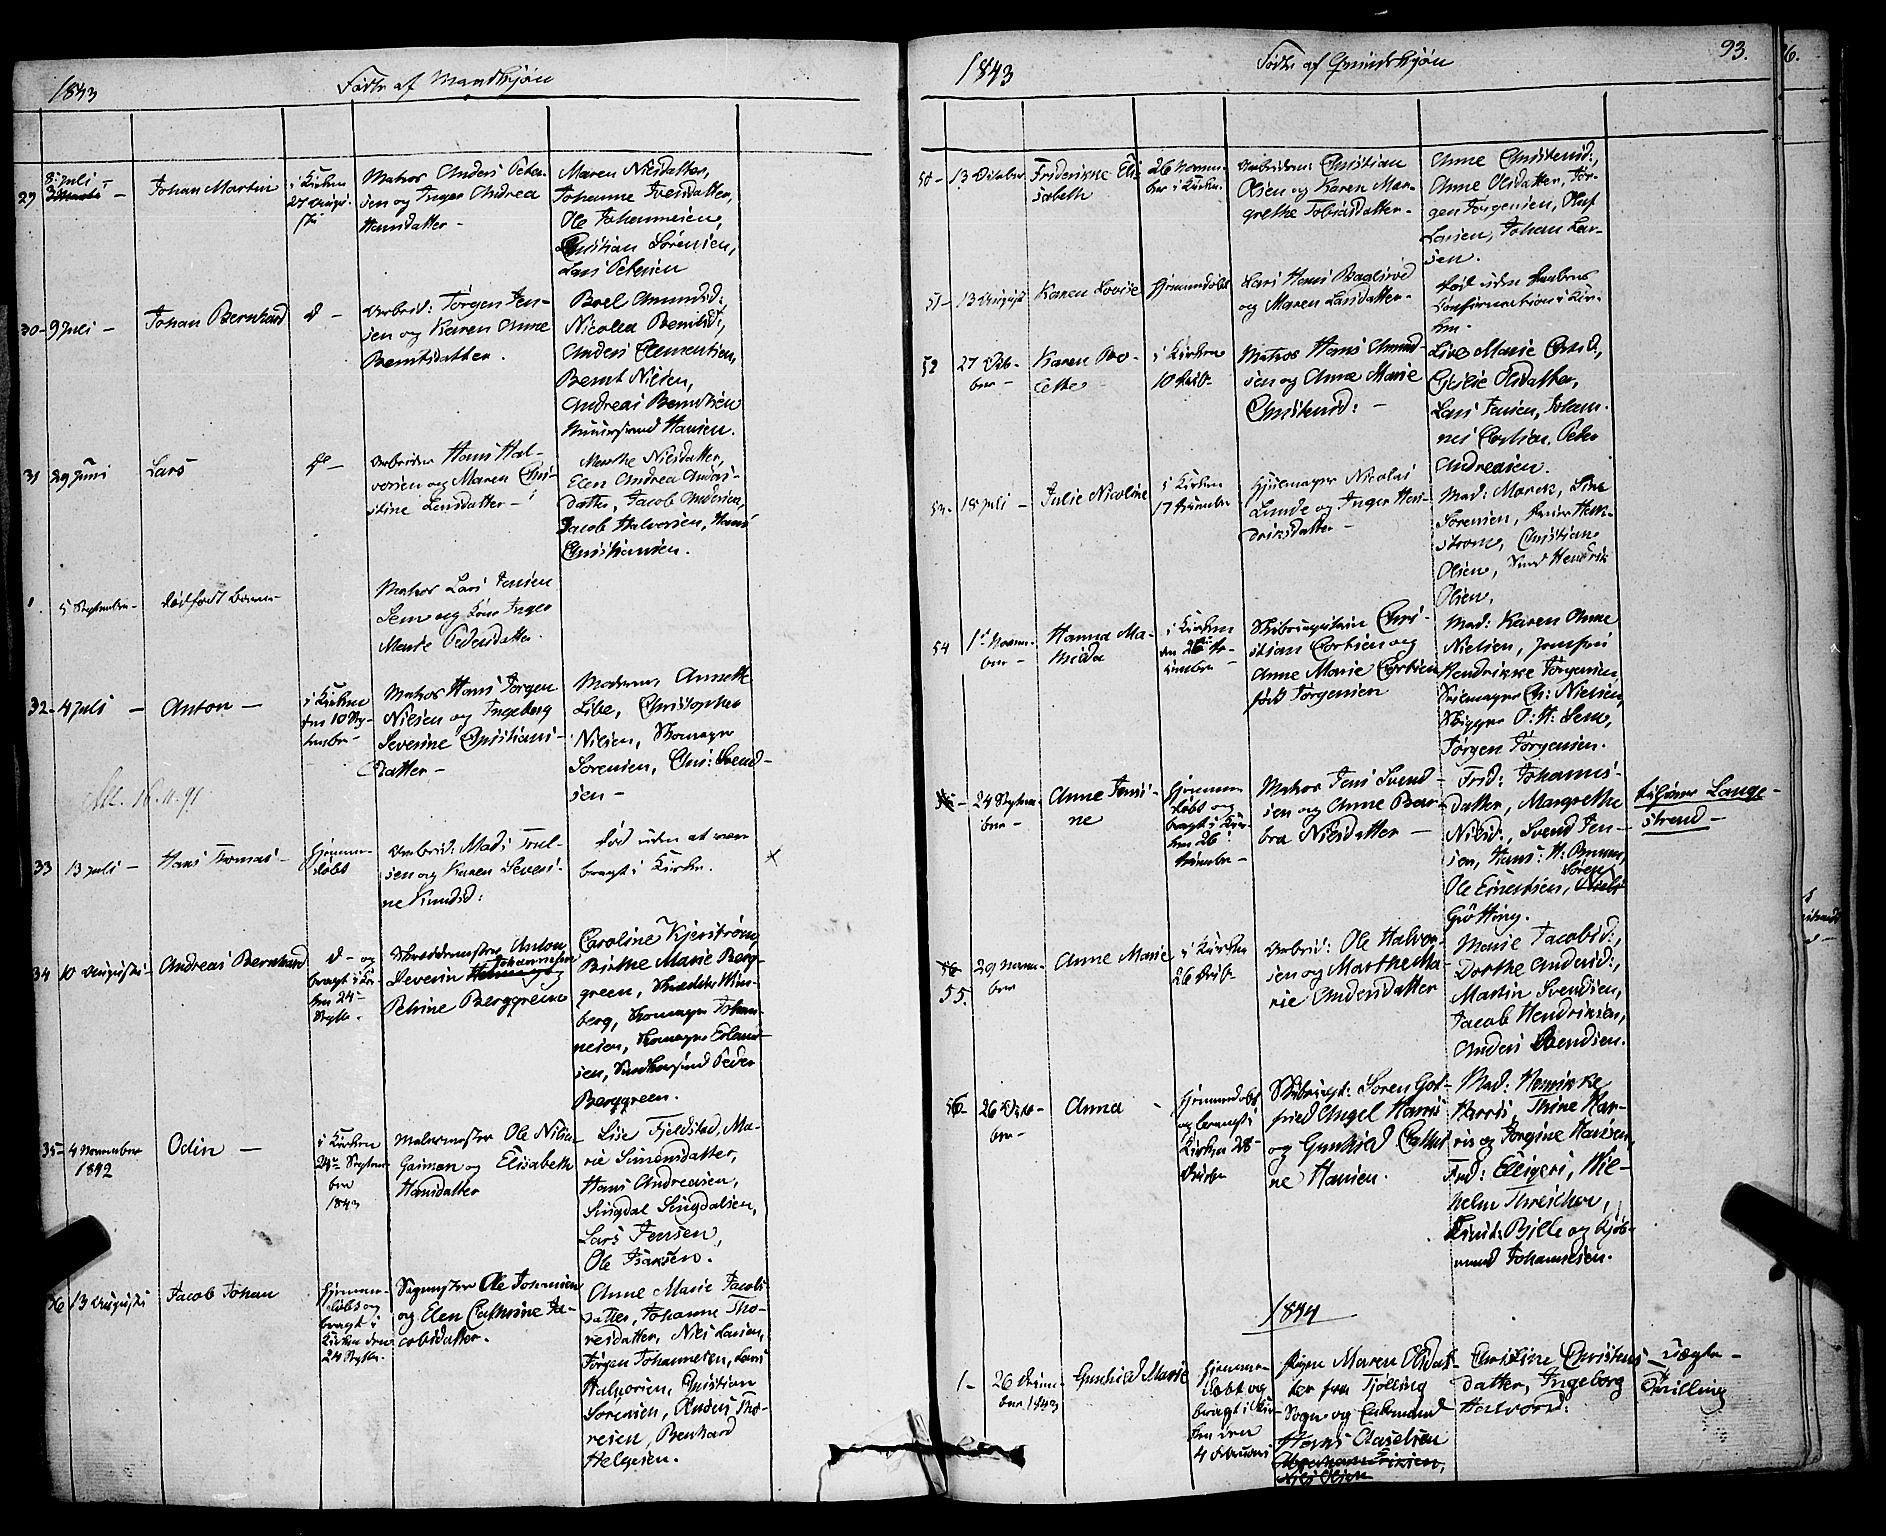 1843
Fødte af Mandkjøn
29
8 Juli -
Johan Martin
i Kirken
27 Augu-
sti
Matros Anders Peter-
sen og Inger Andrea
Hansdatter -
Maren Nilsdatter,
Johanne Iversdatter,
Ole Johannesen,
Christian Sörensen,
Lars Petersen
30 - 9 Juli -
Johan Bernhard
d -
Arbeid: Jörgen Jen-
sen og Karen Anne
Berntsdatter.
Boel Amundsd:,
Nicolea Berntsd:,
Anders Clementsen,
Bernt Nilsen,
Andreas Berntsen
Hansen.
31
29 Juni
Lars
do -
Arbeider Hans Hal-
vorsen og Maren Chri-
stine Larsdatter -
Marthe Nilsdatter,
Elen Andrea Anders-
datter, Jacob Andersen,
Jacob Halvorsen, Hans
Christiansen.
1.
5 September -
dødfødt Barn -
Matros Lars Jensen
Sem og Kone Inger
Marie Pedersdatter.
32 - 4 Juli -
Anton -
i Kirken
den 10 Sep-
tember -
Matros Hans Jörgen
Nilsen og Ingeborg
Severine Christians-
datter -
Moderen, Annette
Lise, Christopher
Nilsen, Skomager
Sorensen, Chr: Svend-
sen -
Att. 16.11.91.
33
13 Juli -
Hans Thomas -
hjemme-
døbt
Arbeid: Mads Truls-
sen og Karen Severi-
ne Knudsd:
død uden at være
bragt i Kirke.
34
10 Augusti -
Andreas Bernhard
d - og
bragt i Kir-
ken 24 -
Septb.
Skræddermester Anton
Severin Johannesen
Petrine Berggreen
Caroline Kjerström,
Birthe Marie Berg-
green, Skrædder Wim-
berg, Skomager Johan-
nesen, Skomager Erland-
sen, Peder
Berggreen.
35 - 4 November
1842
Odin -
i Kirken
24 - Septem-
ber
1843
Malermester Ole Nilsen
Gasman og Elisabeth
Hansdatter
Lise Fjeldstad, Ma-
rie Simensdatter,
Hans Andreasen,
Singdal Singdalsen,
Lars Jensen,
Ole Isaksen.
36
13 Augusti
Jacob Johan
hjemme-
døbt og
bragt i
Kirken den
24 Septb.
Sagmester Ole Johansen
og Elen Cathrine Ja-
cobsdatter.
Anne Marie Jacobs-
datter, Johanne Tho-
resdatter, Niels Larsen,
Jörgen Johannesen, Lars
Halvorsen, Christian
Sörensen, Anders Tho-
resen, Bernhard
Helgesen.
1843
Fødte af Qvindekjøn
93.
50 - 13 October
Frederikke Eli-
sabeth
26 Novem-
ber i Kirken
Arbeideren Christian
Olsen og Karen Mar-
grethe Tobiasdatter -
Anne Christensd:,
Anne Olsdatter, Jör-
gen Jörgensen, Oluf
Larsen, Johan Lar-
sen.
51 - 13 August
Karen Lovise
hjemmedøbt
Lars Hansen
og Maren Larsdatter -
død uden Daabens
Confirmation i Kir-
ken -
52
27 Octo-
ber -
Karen
i Kirken
10 Decb -
Matros Hans Amund-
sen og Anne Marie
Christensd: -
Live Marie
Olsdatter,
Lars Jensen, Johan-
nes Peder
Andreasen.
53 - 18 Juli -
Julie Nicoline
i Kirken
17 December
Nicolai
Lunde og Inger Hen-
driksdatter -
Mad: Marck, Sine
Sorensen,
ström, Christian
Olsen, Hendrik
Olsen.
54
1st Novem-
ber -
Hanna Ma-
thilda
i Kirken
den 26 De-
cember -
Skibscapitain Chri-
stian Corlsen og
Anne Marie Corlsen
född Jörgensen
Mad: Karen Anne
Nielsen, Jomfru
Hendrikke Jörgensen,
Ch: Nielsen,
P: H: Sem,
Jörgen Jörgensen.
24 Septem-
ber -
Anne Jensi-
ne
hjemme-
døbt og
bragt i Kir-
ken 26
December -
Matros Jens Svend-
sen og Anne Bar-
bra Nilsdatter -
Frid: Johannes-
datter, Margrethe
Nilsd:, Svend Jen-
sen, Hans: H:
Ole Evensen, Sören
Grötting.
tilhører Lange-
strand -
55.
29 Novem-
ber
Anne Marie
i Kirken
26 Decb -
Arbeid: Ole Halvor-
sen og Marthe Ma-
rie Andersdatter
Marie Jacobsd:,
Dorthe Andersd:,
Martin Svendsen,
Jacob Hendriksen,
Anders Svendsen.
56 - 26 Octo-
ber -
Anna -
hjemmedøbt
og bragt i
Kirken 28 -
Decbr
Skibscapt: Sören Got-
fried Angel Hansen
og Gunhild Cathri-
ne Hansen.
Mad: Henrikke
Thrine Har-
ris og Jörgine Hansen,
Frd: Elligers, Wil-
helm Threscher,
Bille og Kjöb-
mand Johannesen.
1844
1 - 26 Decem-
ber 1843
Gunhild Marie
hjemme-
döbt og
bragt i Kir-
ken den
4 Februari
Pigen Maren Olsdat-
ter fra Tjölling
Sogn og Enkemand
Hans Axelsen
Niels Olsen
Christine Christens-
datter, Ingeborg
Halvorsd:
- Uægte -
Tvilling